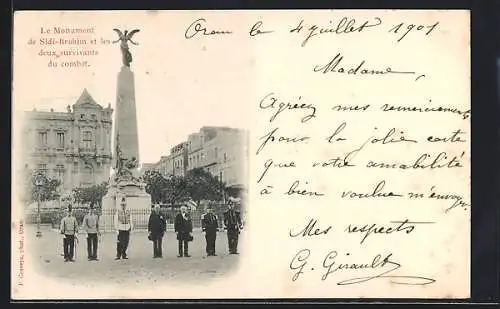 Le Monument
de Sidi-Brahim et les
deux survivants
du combat.
Oran le 4 juillet 1901
Madame,
Agréez mes remerciements
pour la jolie carte
que votre amabilité
à bien voulue m'envoyer
Mes respects
G. Girault
phot., Oran